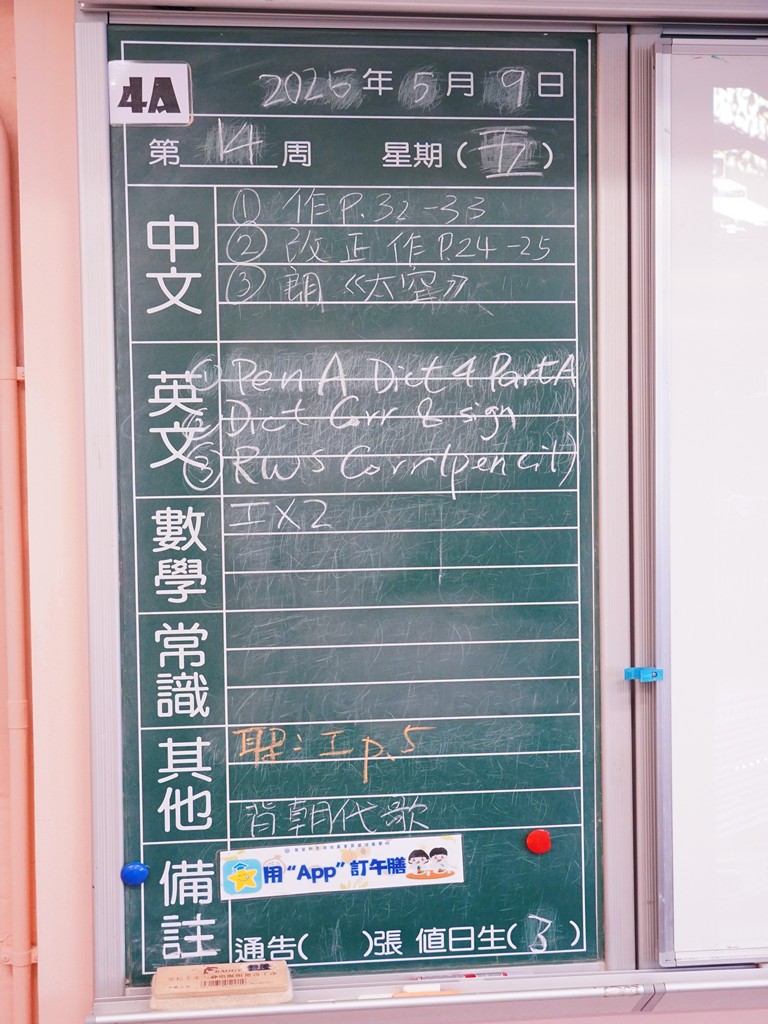 4A
2025年5月9日
第14周 星期(五)
中文
① 作 P.32-33
② 改正 作 P.24-25
③ 朗《太空》
英文
① Pen A Dict 4 Part A
② Dict Corr & sign
③ RWS Corr (pencil)
數學
工X2
常識
其他
聖:工p.5
背朝代歌
備註
用“App”訂午膳
通告( )張 值日生(3)